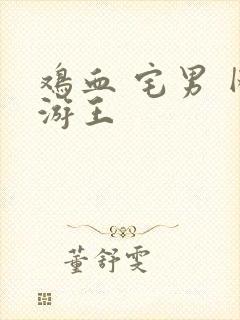 鸡血 宅男
游王
董舒雯